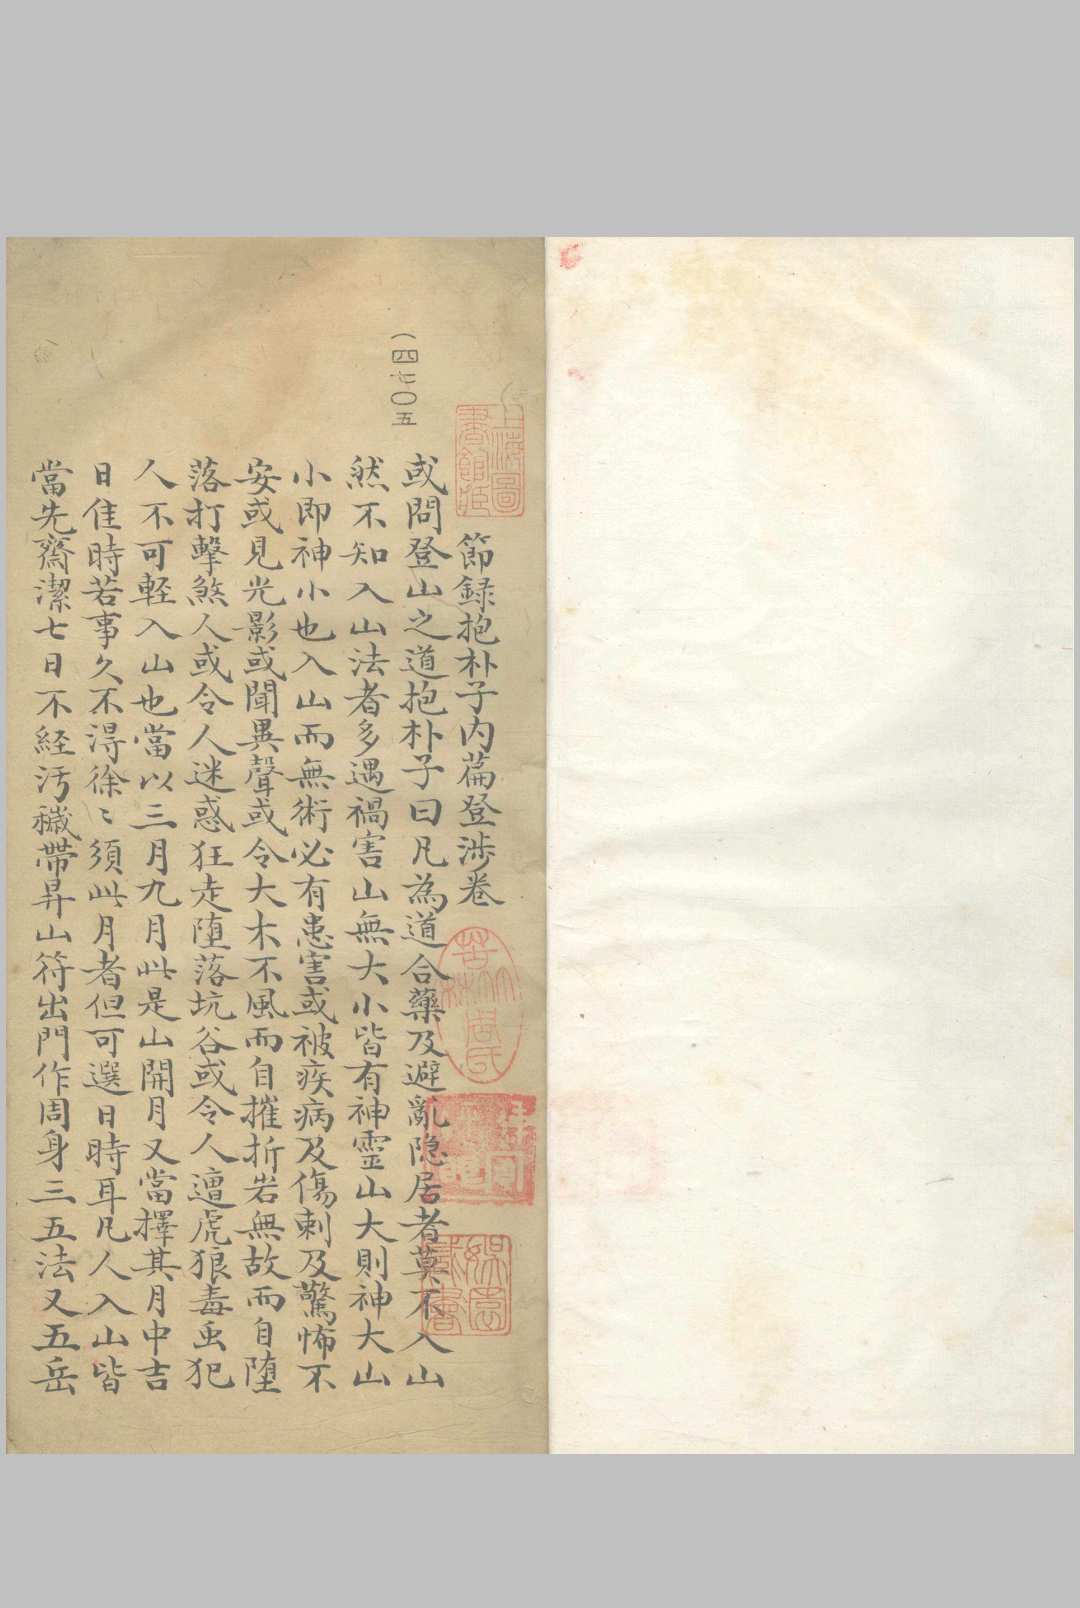 上海圖書館藏
(四七〇五
節録抱朴子内萹登渉卷
或問登山之道抱朴子曰凡為道合藥及避亂隐居者莫不入山
然不知入山法者多遇禍害山無大小皆有神靈山大則神大山
小即神小也入山而無術必有患害或被疾病及傷刺及驚怖不
安或見光影或聞異聲或令大木不風而自摧折岩無故而自堕
落打擊煞人或令人迷惑狂走堕落坑谷或令人遭虎狼毒虫犯
人不可輕入山也當以三月九月此是山開月又當擇其月中吉
日佳時若事久不得徐〻須此月者但可選日時耳凡人入山皆
當先齋潔七日不経汚穢帶昇山符出門作周身三五法又五岳
苦林周氏
娱園